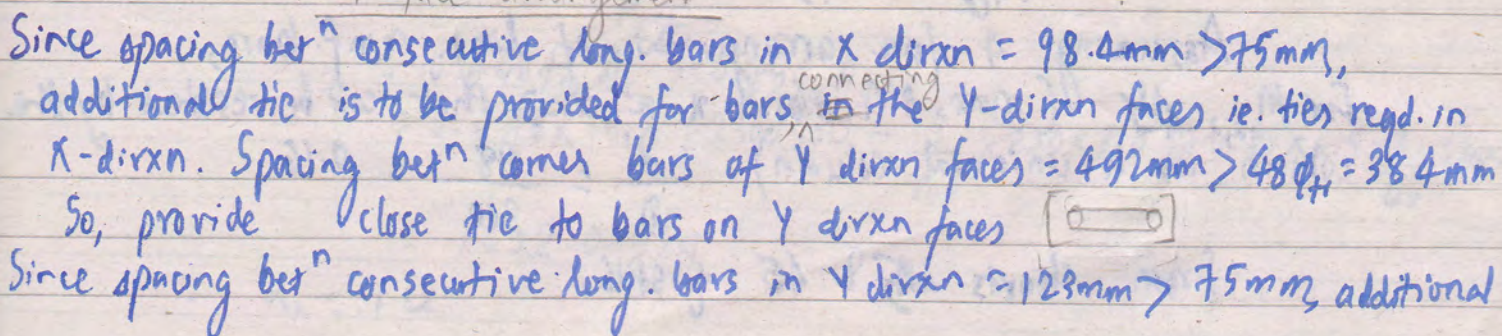 Since spacing betⁿ consecutive long. bars in X dirxn = 98.4mm >75mm,
additional tie is to be provided for bars connecting the Y-dirxn faces ie. ties reqd. in
X-dirxn. Spacing betⁿ corner bars of Y dirxn faces = 492mm > 48 φtr = 384mm
So, provide close tie to bars on Y dirxn faces
Since spacing betⁿ consecutive long. bars in Y dirxn = 123mm > 75mm, additional